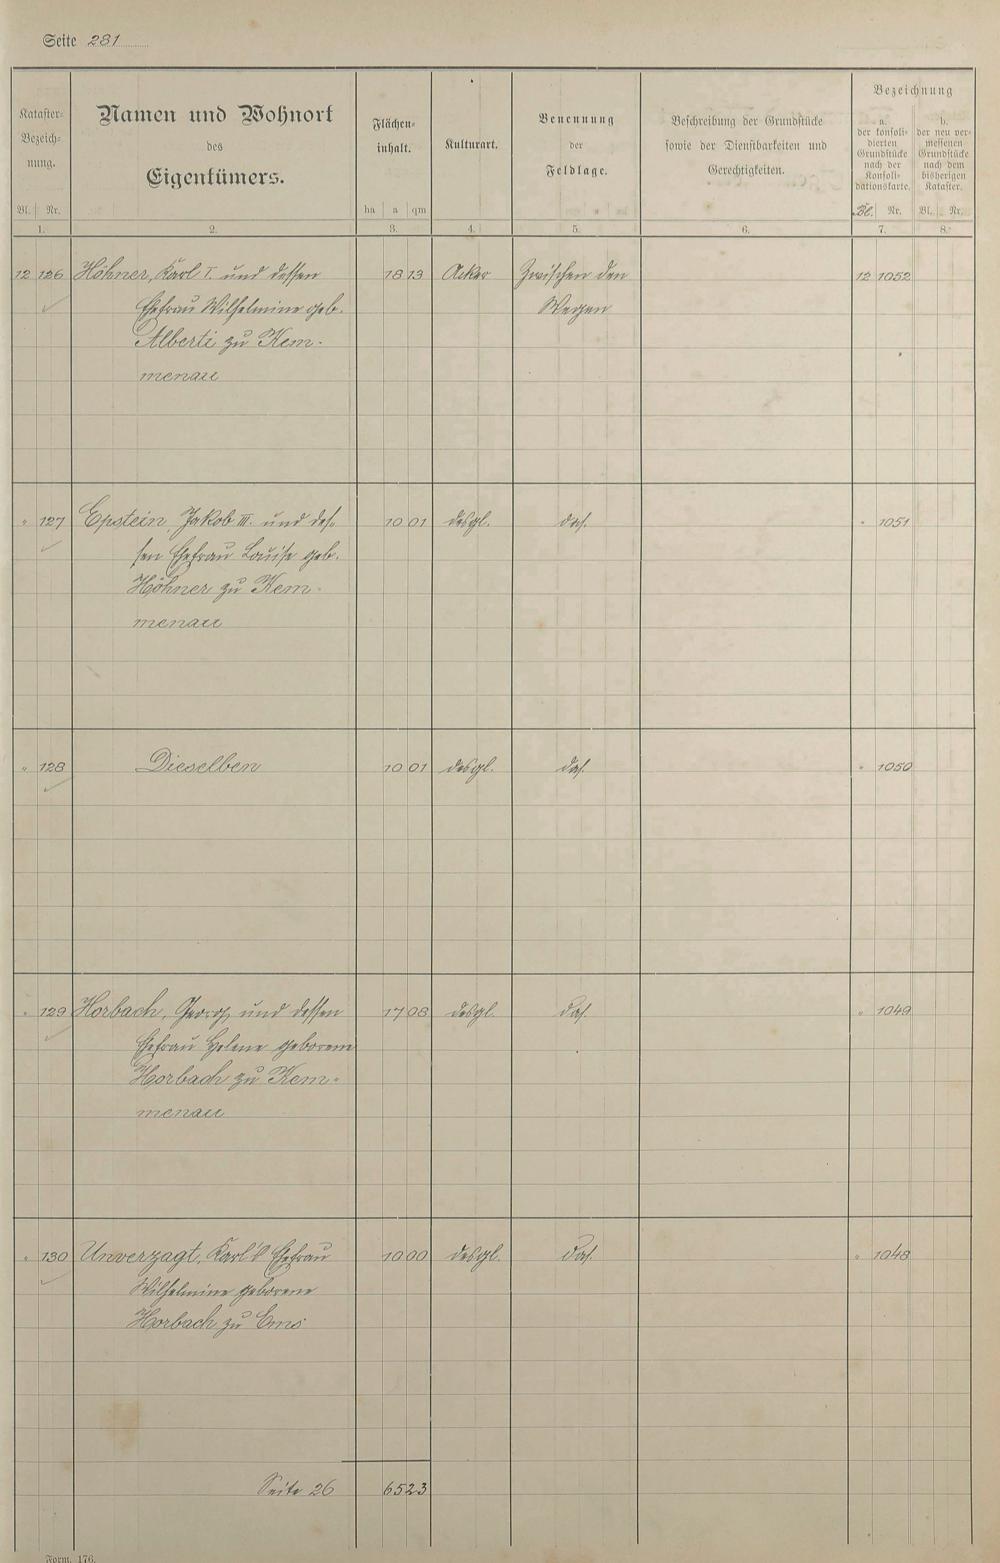 Seite 281
Kataster-
Bezeich-
nung.
Bl. Nr.
Namen und Wohnort
des
Eigentümers.
Flächen-
inhalt.
ha a qm
Kulturart.
Benennung
der
Feldlage.
Beschreibung der Grundstücke
sowie der Dienstbarkeiten und
Gerechtigkeiten.
Bezeichnung
a.
der konsoli-
dierten
Grundstücke
nach der
Konsoli-
dationskarte.
Bl. Nr.
b.
der neu ver-
messenen
Grundstücke
nach dem
bisherigen
Kataster.
Bl. Nr.
1. 2. 3. 4. 5. 6. 7. 8.
12 126 Höhner, Karl I. und dessen 18 13 Acker Zwischen den 12 1052
Ehefrau Wilhelmine geb. Wegen
Alberti zu Kem-
menau
" 127 Epstein, Jakob III. und des- 10 01 desgl. das. " 1051
sen Ehefrau Louise geb.
Höhner zu Kem-
menau
" 128 Dieselben 10 01 desgl. das. " 1050
" 129 Horbach, Georg und dessen 17 08 desgl. das. " 1049
Ehefrau Helene geborene
Horbach zu Kem-
menau
" 130 Unverzagt, Karl's Ehefrau 10 00 desgl. das. " 1048
Wilhelmine geborene
Horbach zu Ems
Seite 26 65 23
Form. 176.